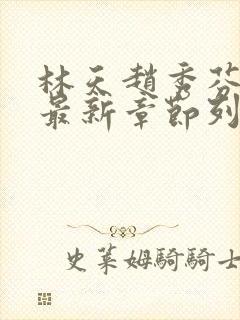 林天趙秀芬
最新章節列
史萊姆騎騎士